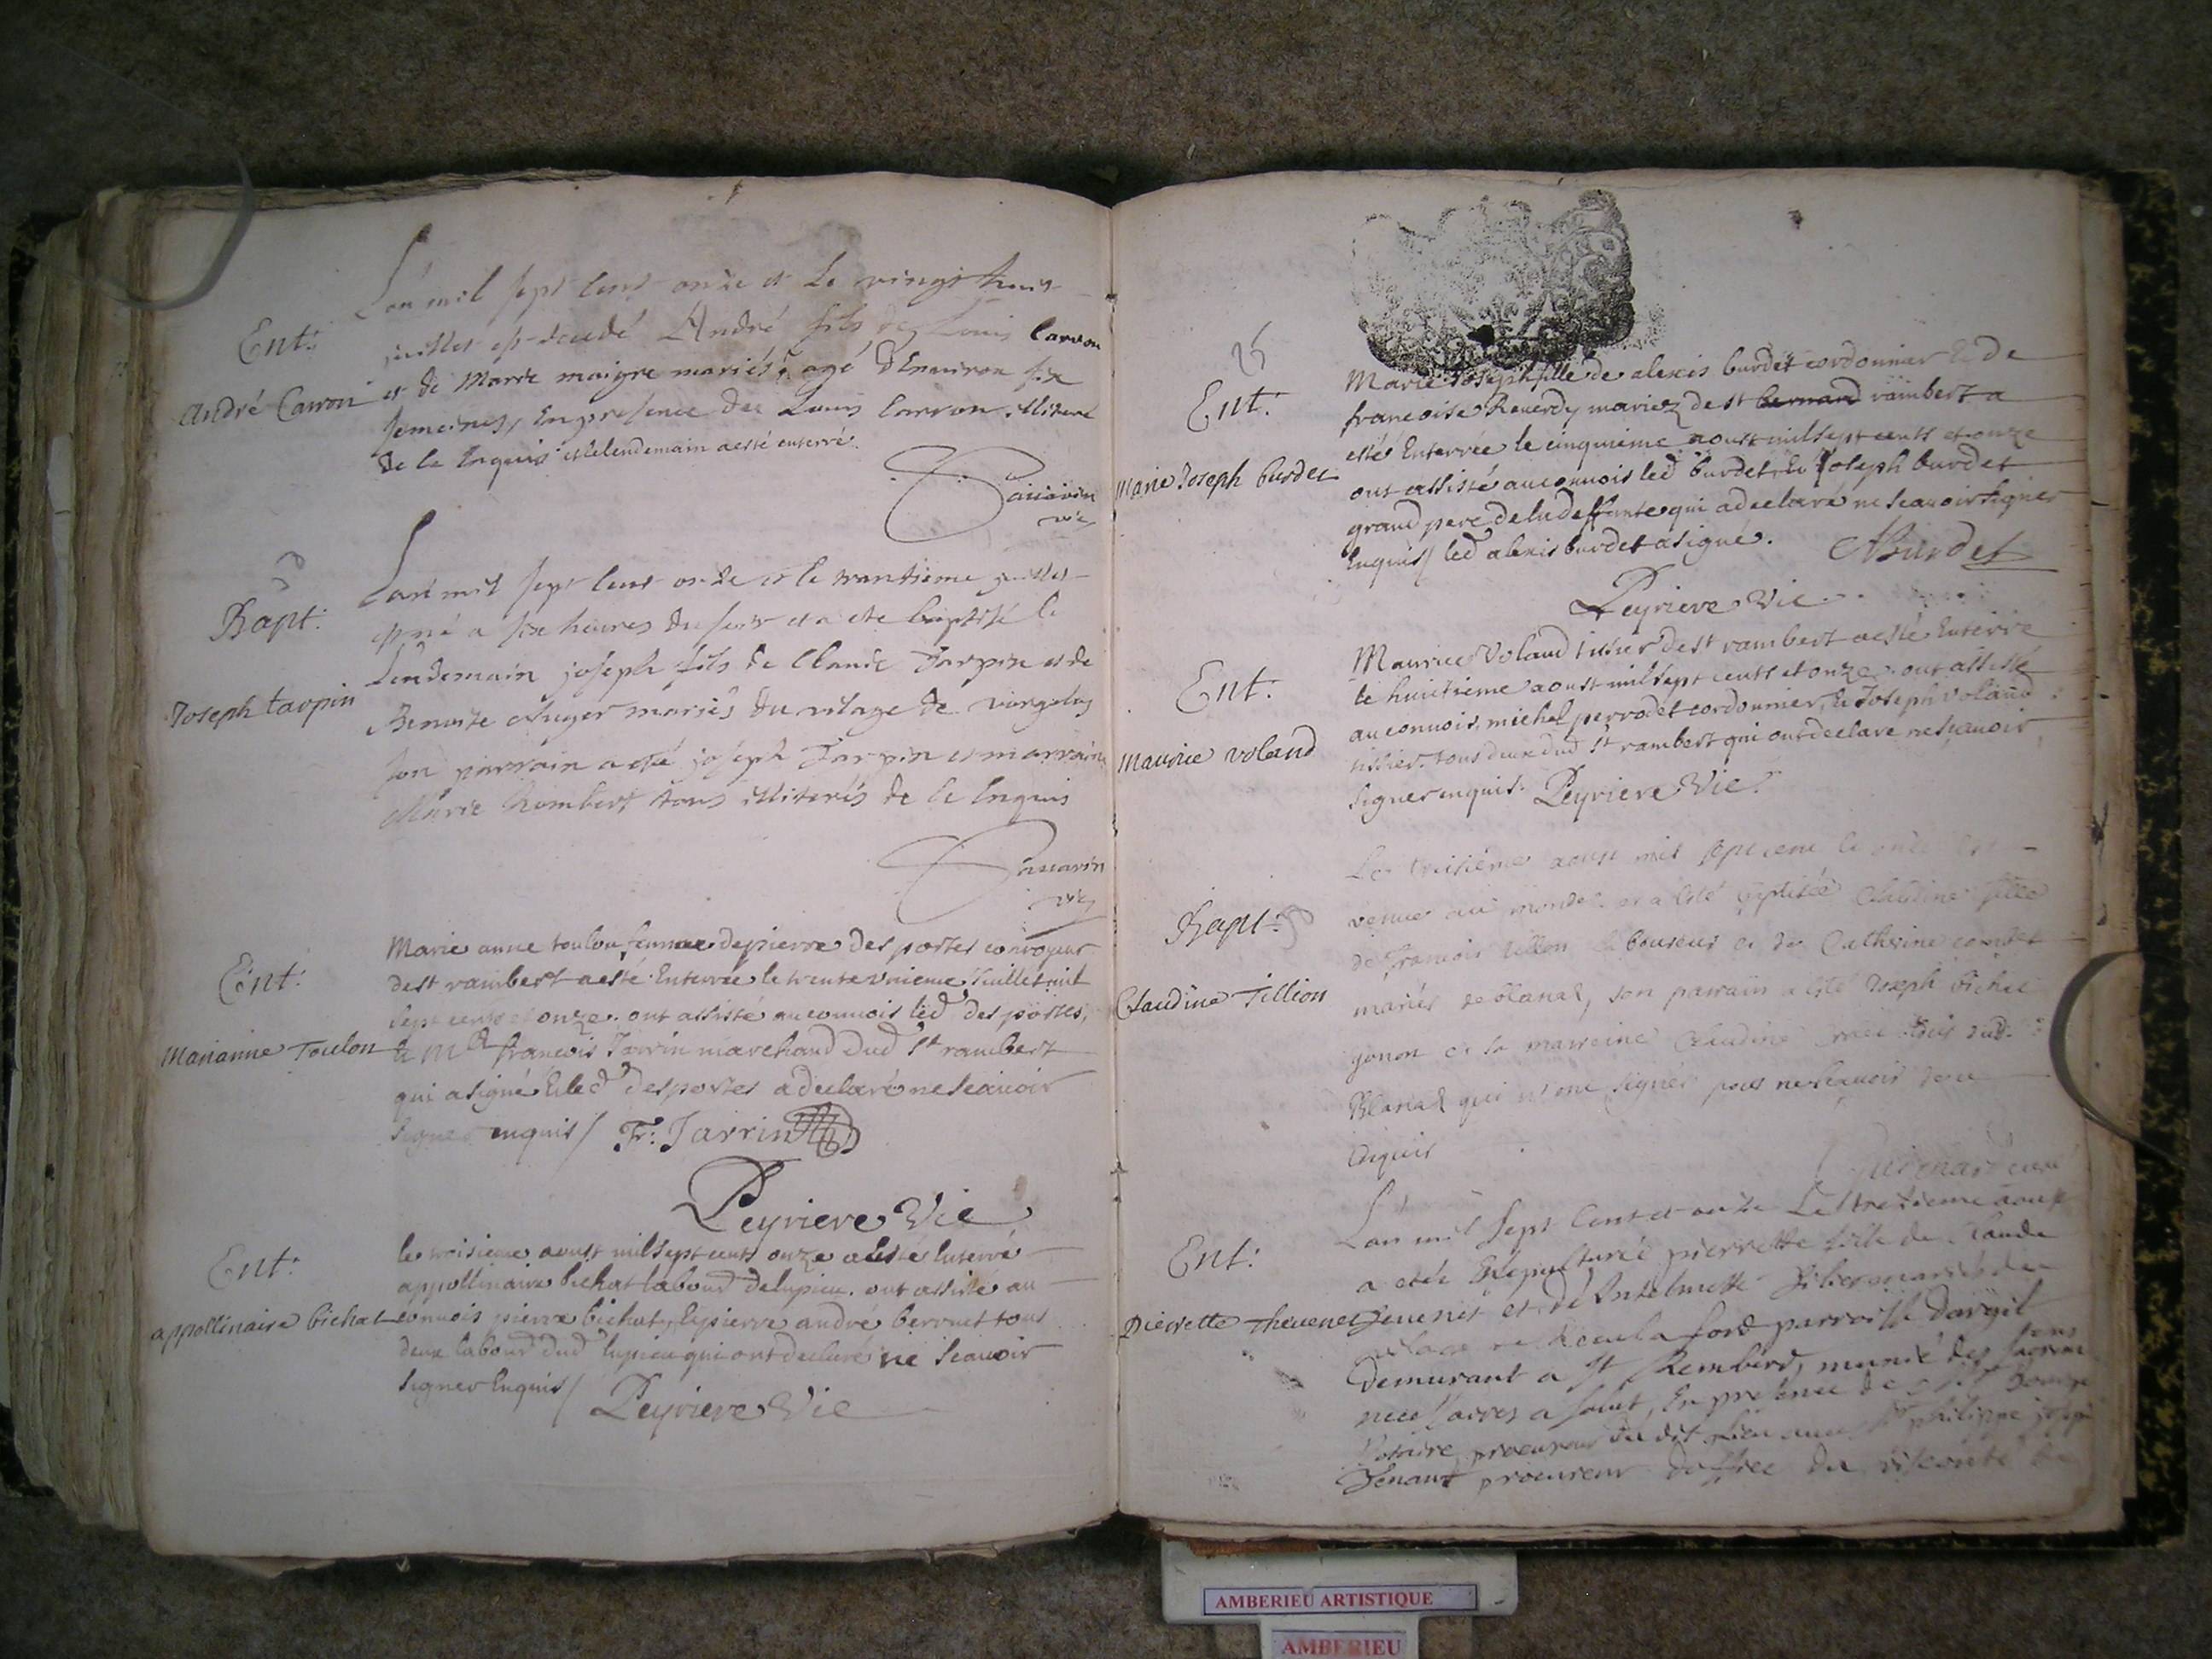 L'an mil sept cens onze et le vingt huit
Ent:
juillet est decedé André fils de Louis Carron
André Carron
et de Marie maigre mariés, agé d'Environ six
semeines, En presence du Louis Carron illiteré
de ce Enquis et le lendemain a esté enterré.
Savarin
vic
L'an mil sept cens onze et le trantieme juillet
Bapt:
est né a six heures du soir et a ete baptisé le
Lendemain joseph fils de Claude Tarpin et de
Joseph tarpin
Benoite Auger mariés du vilage de
son parrain a eté joseph Tarpin et marraine
Marie humbert tous illiterés de ce Enquis
Savarin
vic
Marie anne toulon femme de pierre des portes conroyeur
Ent:
de st rambert a esté Enterrée le trente unieme Juillet mil
sept cens et onze. ont assisté au convois led des portes,
Marianne Toulon
& Mr francois Jarrin marchand dud st rambert
qui a signé & led desportes a declaré ne scavoir
signer enquis / Fr: Jarrin
Peyriere Vic
Ent:
le troisieme aoust mil sept cens onze a esté Enterré
appollinaire bichat labour de lupieu. ont assisté au
appollinaire bichat
convois pierre bichat, & pierre andré berrnet tous
deux labour dud lupieu qui ont declaré ne scavoir
signer Enquis /
Peyriere Vic
25
Ent:
Marie Joseph fille de alexis burdet cordonnier & de
francoise Reverdy mariez de st bernard rambert a
esté Enterrée le cinquieme aoust mil sept cents et onze
Marie Joseph burdet
ont assisté au convois led burdet, & Joseph burdet
grand pere de lad deffunte qui a declaré ne scavoir signer
Enquis / led alexis burdet a signé.
ABurdet
Peyriere Vic
Maurice Voland tissier de st rambert a esté Enterré
Ent:
le huitieme aoust mil sept cents et onze. ont assisté
au convois, michel perrodet cordonnier, & Joseph voland
Maurice voland
tissier. tous deux dud st rambert qui ont declaré ne scavoir
signer enquis. Peyriere Vic
Le troisiéme aoust mil sept cent et onze est
Bapt:
venue au monde et a esté baptisée Claudine fille
de francois tillion laboureur et de Catherine combet
Claudine Tillion
mariés de blanaz, son parrain a esté Joseph bichat
gonon et sa marreine Claudine tous dud.
Blanaz qui n'ont signés pour ne scavoir de ce
Enquis
curé
L'an mil sept Cent et onze Le treizieme aoust
Ent:
a etée Ensepulturée pierrette fille de Claude
Pierrette Thevenet
Jevenet et de Antelmette mariés du
vilage de parroisse
demurant a st Rembert, munié des sacrem
necessaires a salut, En presence de
Notaire procureur du dit lieu philippe joseph
Tenant procureur d'office du